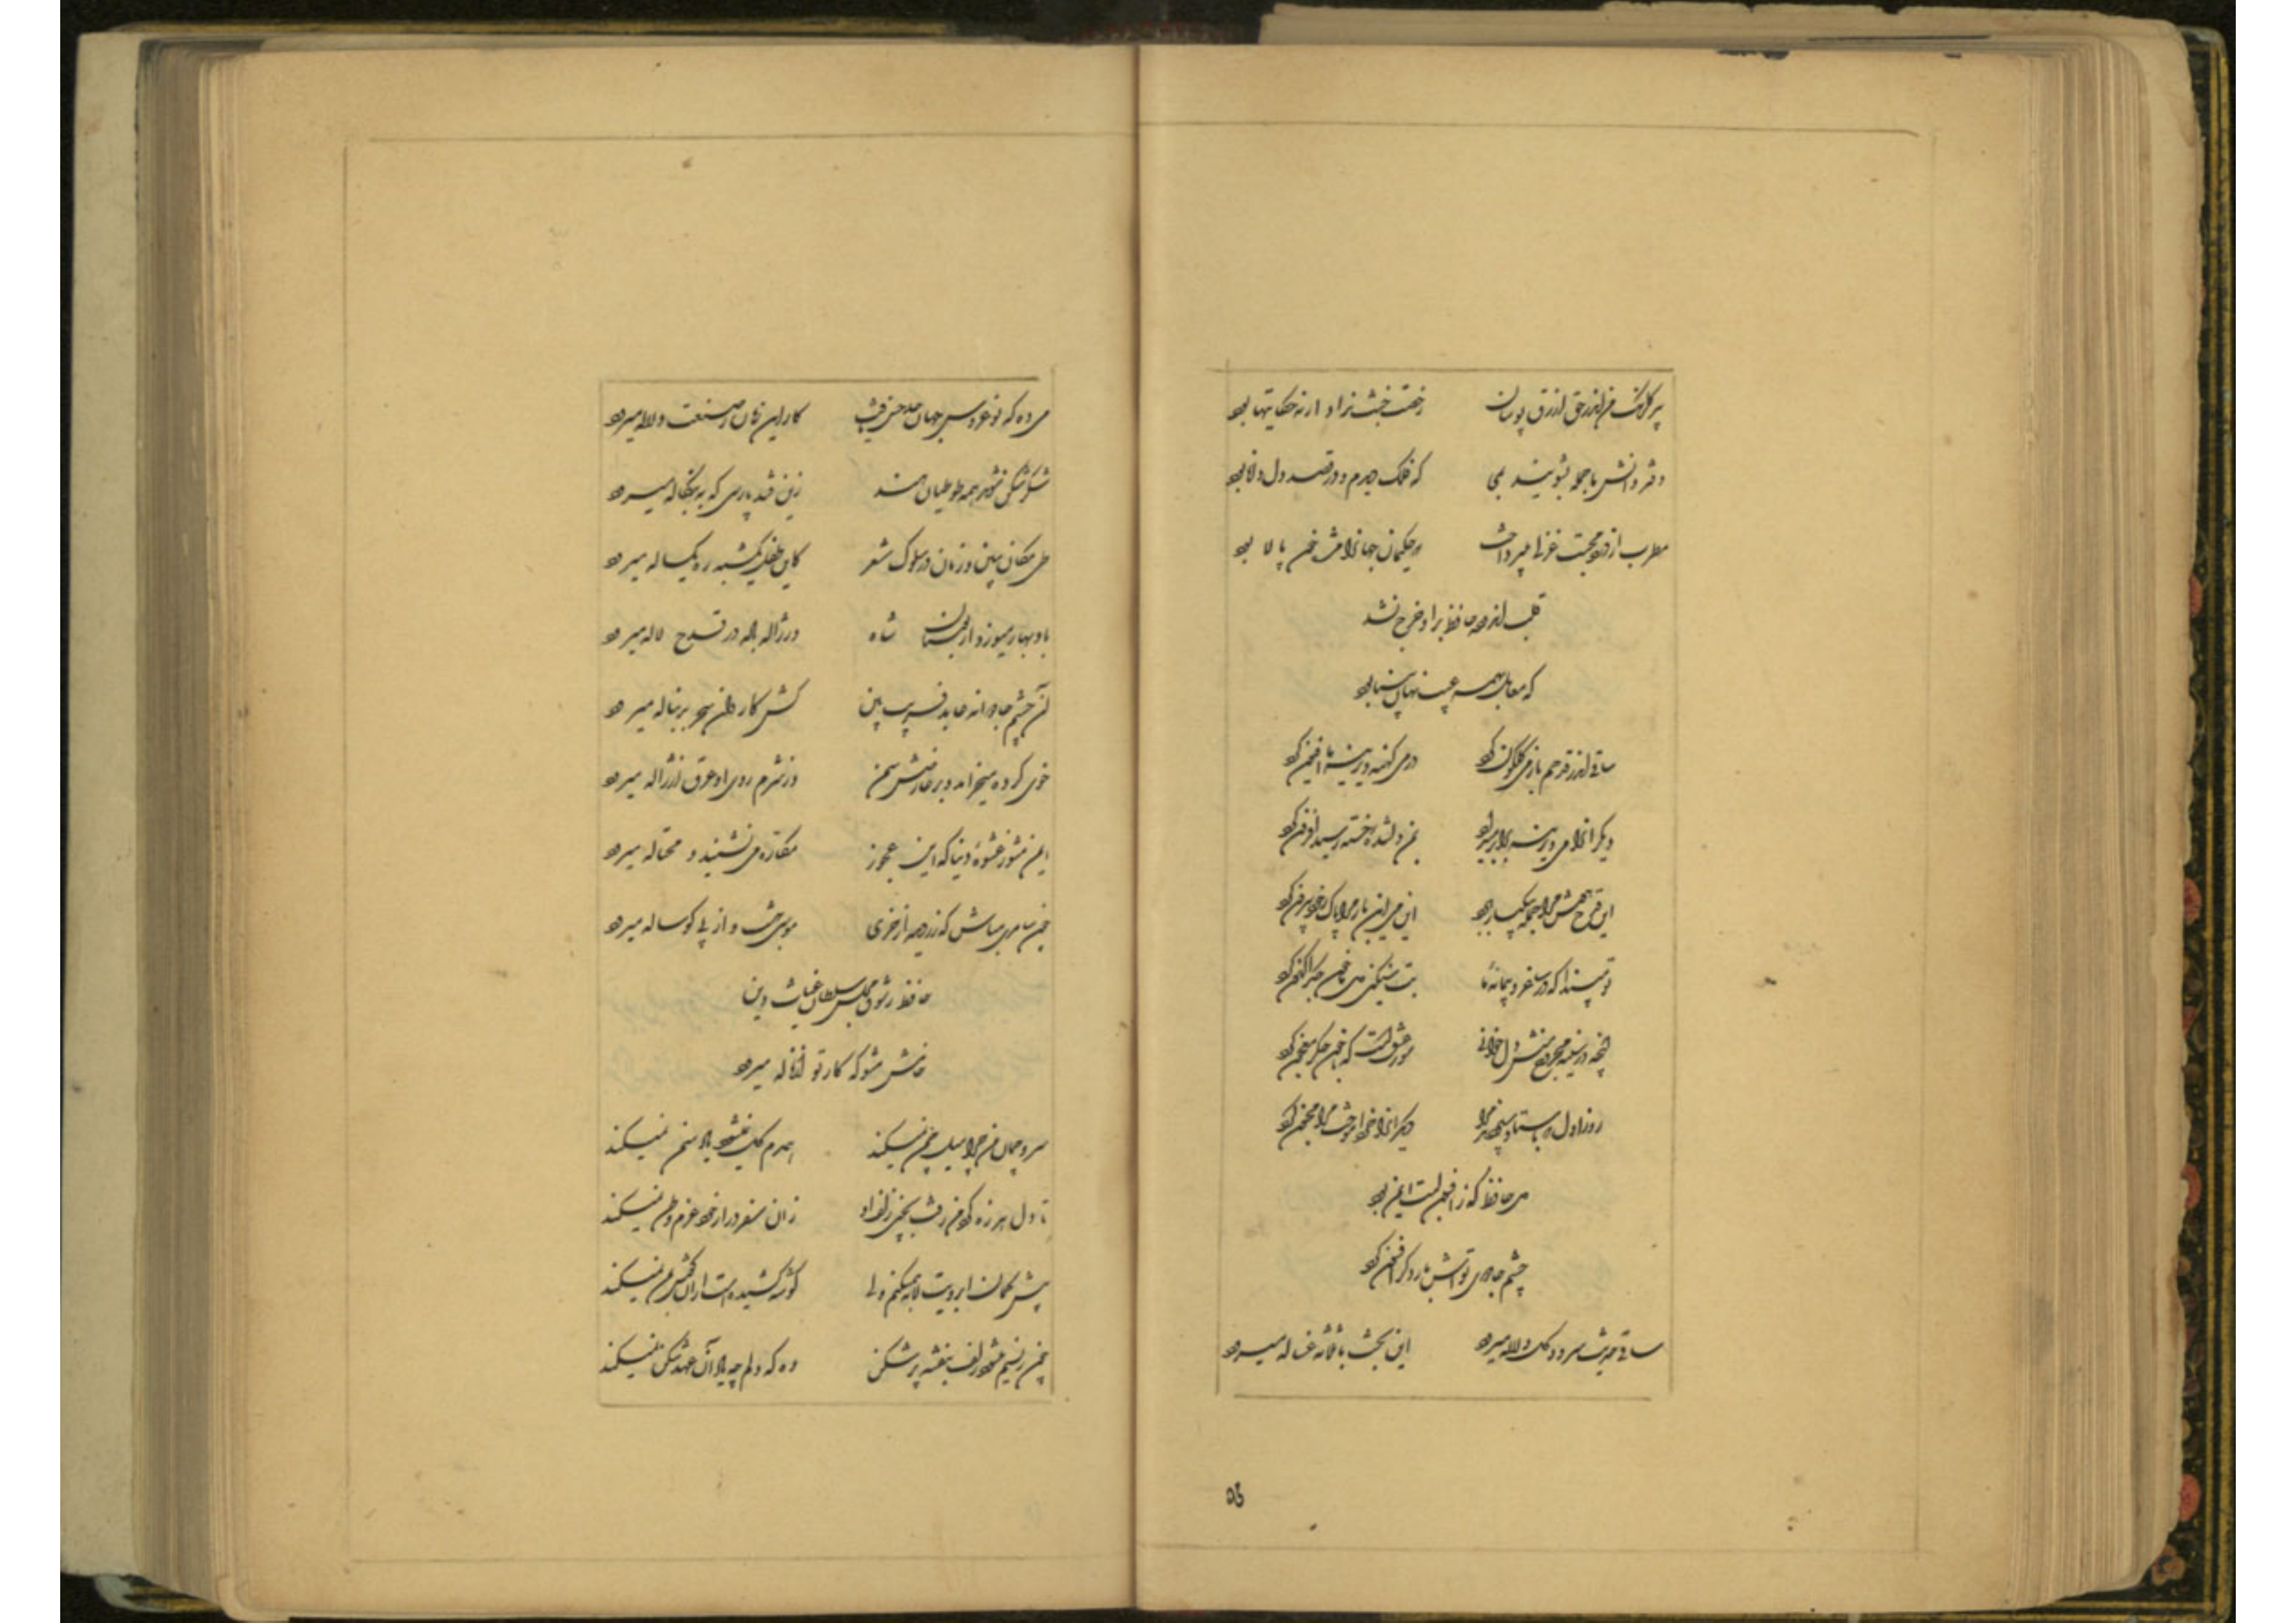 پیر گلرنگ من اندر حق ازرق پوشان رخصت خبث نداد ار نه حکایتها بود
دفتر دانش ما جمله بشویند بمی که فلک دیدم و در قصد دل دانا بود
مطرب از درد محبت غزلی میپرداخت که حکیمان جهانرا مژه خون پالا بود
قلب اندوده حافظ بر او خرج نشد
که معامل بهمه عیب نهان بینا بود
ساقی اندر قدحم باز می گلگون کرد در می کهنه دیرینه ما افیون کرد
دیگرانرا می دیرینه برابر میداد بمن دلشده خسته رسید افزون کرد
این قدح هوش مرا جمله بیکبار ببرد این می این بار مرا پاک ز خود بیرون کرد
تو مپندار که در ساغر و پیمانهٔ ما بت سنگین دل من خون جگر اکنون کرد
آنچه در سینه مجروح منش دل خوانی سوز عشق است که با خون جگر معجون کرد
روز اول که باستاد سپردند مرا دیگرانرا خرد آموخت مرا مجنون کرد
می حافظ که ز افیون لبت بود
چشم جادوی تواش بار دگر افسون کرد
ساقی حدیث سرو و گل و لاله میرود این بحث با ثلاثه غساله میرود
می ده که نو عروس جهان حد حسن یافت کار این زمان ز صنعت دلاله میرود
شکر شکن شوند همه طوطیان هند زین قند پارسی که به بنگاله میرود
طی مکان ببین و زمان در سلوک شعر کاین طفل یکشبه ره یکساله میرود
باد بهار میوزد از گلستان شاه در ژاله باده در قدح لاله میرود
آن چشم جادوانه عابد فریب بین کش کاروان سحر بدنباله میرود
خوی کرده میخرامد و بر عارضش سمن وز شرم روی او عرق از ژاله میرود
ایمن مشو ز عشوهٔ دنیا که این عجوز مکاره می نشیند و محتاله میرود
چون سامری مباش که زر دید از خری موسی بهشت و از پی گوساله میرود
حافظ ز شوق مجلس سلطان غیاث دین
خامش مشو که کار تو از ناله میرود
سرو چمان من چرا میل چمن نمیکند همدم گل نمیشود یاد سمن نمیکند
تا دل هرزه گرد من رفت بچین زلف او زان سفر دراز خود عزم وطن نمیکند
پیش کمان ابرویت لابه همیکنم ولی گوشه کشیده است از آن گوش بمن نمیکند
چون ز نسیم میشود زلف بنفشه پر شکن وه که دلم چه یاد آن عهد شکن نمیکند